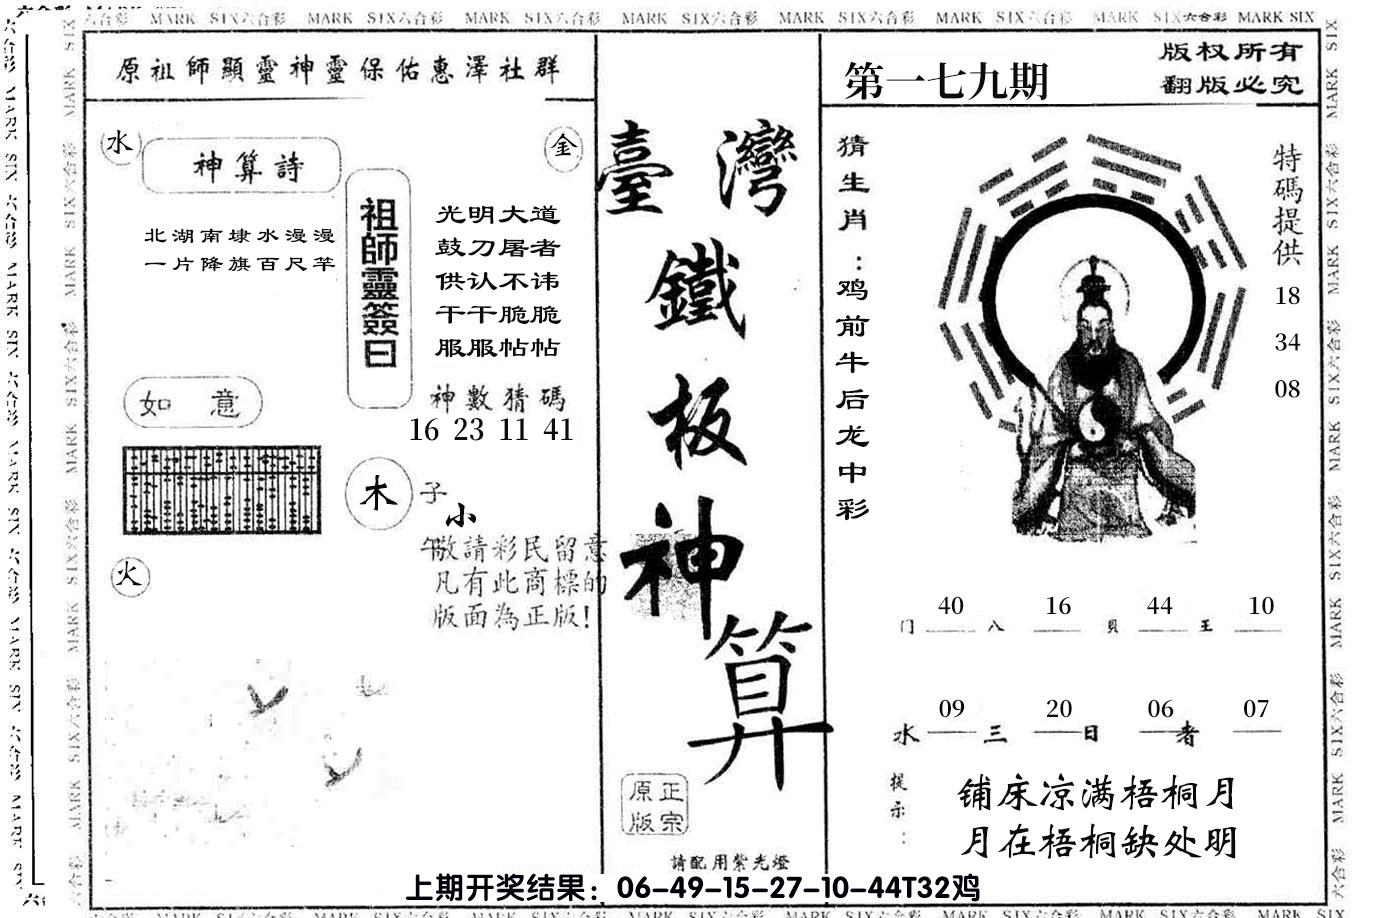 原祖師顯靈神靈保佑惠澤社群
水
神算詩
金
北湖南埭水漫漫
一片降旗百尺竿
祖師靈簽曰
光明大道
鼓刀屠者
供认不讳
干干脆脆
服服帖帖
神數猜碼
16 23 11 41
如意
木
子
小
午
敬請彩民留意
凡有此商標的
版面為正版!
火
臺灣
鐵
板
神
算
原正
版宗
請配用紫光燈
第一七九期
版权所有
翻版必究
猜生肖:鸡前牛后龙中彩
特碼提供
18
34
08
40 16 44 10
门 八 貝 王
09 20 06 07
水 三 日 者
提示:
铺床凉满梧桐月
月在梧桐缺处明
上期开奖结果：06-49-15-27-10-44T32鸡
MARK SIX六合彩 MARK SIX六合彩 MARK SIX六合彩 MARK SIX六合彩 MARK SIX六合彩 MARK SIX六合彩 MARK SIX六合彩 MARK SIX